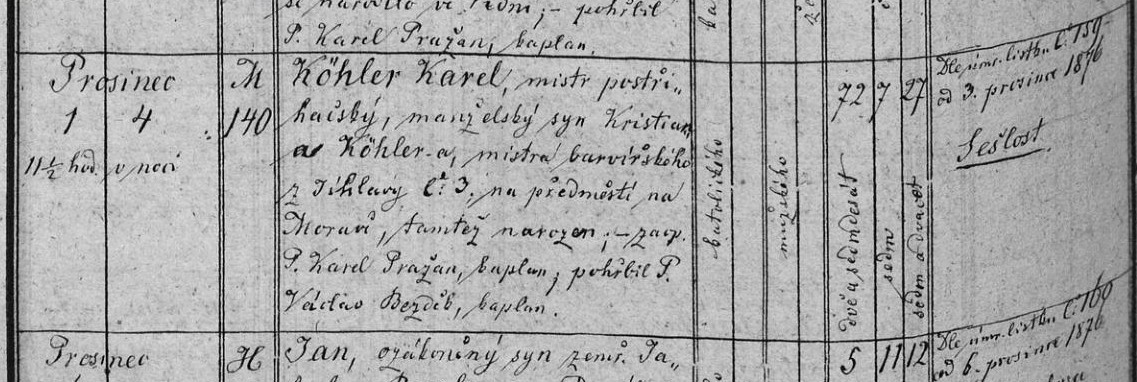 se narodilo ve Vídni; – pohřbil
P. Karel Pražan, kaplan.
Prosinec
1 4
11½ hod. v noci
M
140
Köhler Karel, mistr postři„
hačský, manželský syn Kristian„
a Köhler-a, mistra barvířského
z Jihlavy Č: 3. na předměstí na
Moravě, tamtéž narozen; – zaop.
P. Karel Pražan, kaplan; pohřbil P.
Václav Bezděk, kaplan.
katolického
mužského
72 7 27
dvě a sedmdesát
sedm
sedm a dvacet
Dle úmr. lístku Č: 159
od 3. prosince 1876
Sešlost.
Prosinec
H
Jan, ozákoněný syn zemř. Ja„
5 11 12
Dle úmr. lístku Č: 160
od 6. prosince 1876